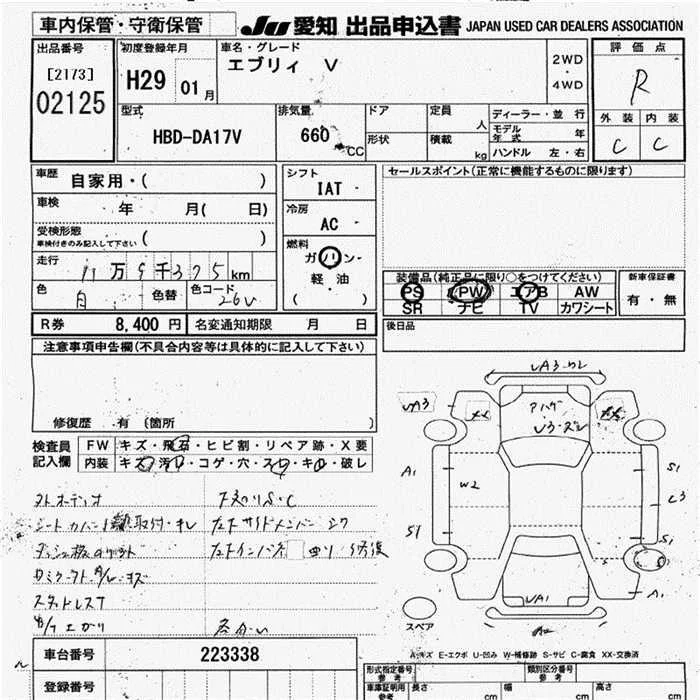 車内保管・守衛保管
JU 愛知 出品申込書 JAPAN USED CAR DEALERS ASSOCIATION
出品番号
[2173]
02125
初度登録年月
H29 01月
車名・グレード
エブリィ V
2WD
・
4WD
評価点
R
外装 内装
C C
型式
HBD-DA17V
排気量
660 CC
ドア
形状
定員 人
積載 kg
ディーラー・並行
モデル年式 年
ハンドル 左・右
車歴
自家用・( )
車検 年 月( 日)
受検形態
車検付きのみ記入して下さい ( )
走行 11万9千375km
色 白 色替 色コード 26U
シフト
IAT -
冷房
AC -
燃料
ガソリン・
軽・油
( )
セールスポイント(正常に機能するものに限ります)
装備品(純正品に限り○をつけてください)
PS PW エアB AW
SR ナビ TV カワシート
新車保証書
有・無
後日品
R券 8,400円 名変通知期限 月 日
注意事項申告欄(不具合内容等は具体的に記入して下さい)
修復歴 有 (箇所 )
検査員記入欄
FW キズ・飛石・ヒビ割・リペア跡・X要
内装 キズ・汚れ・コゲ・穴・スレ・キレ・破レ
下廻りS・C
シートカバー 取付・キレ
左フトサイドメンバー
左フトインパネ 曲り・修復
スタッドレスT
VA3
A1
W2
S1
S1
C3
S1
A1
VA1
スペア
A-キズ E-エクボ U-凹み W-補修跡 S-サビ C-腐食 XX-交換済
車台番号 223338
登録番号
形式指定番号
参考
類別区分番号
参考
車庫証明用
参考
長さ cm 幅 cm 高さ cm